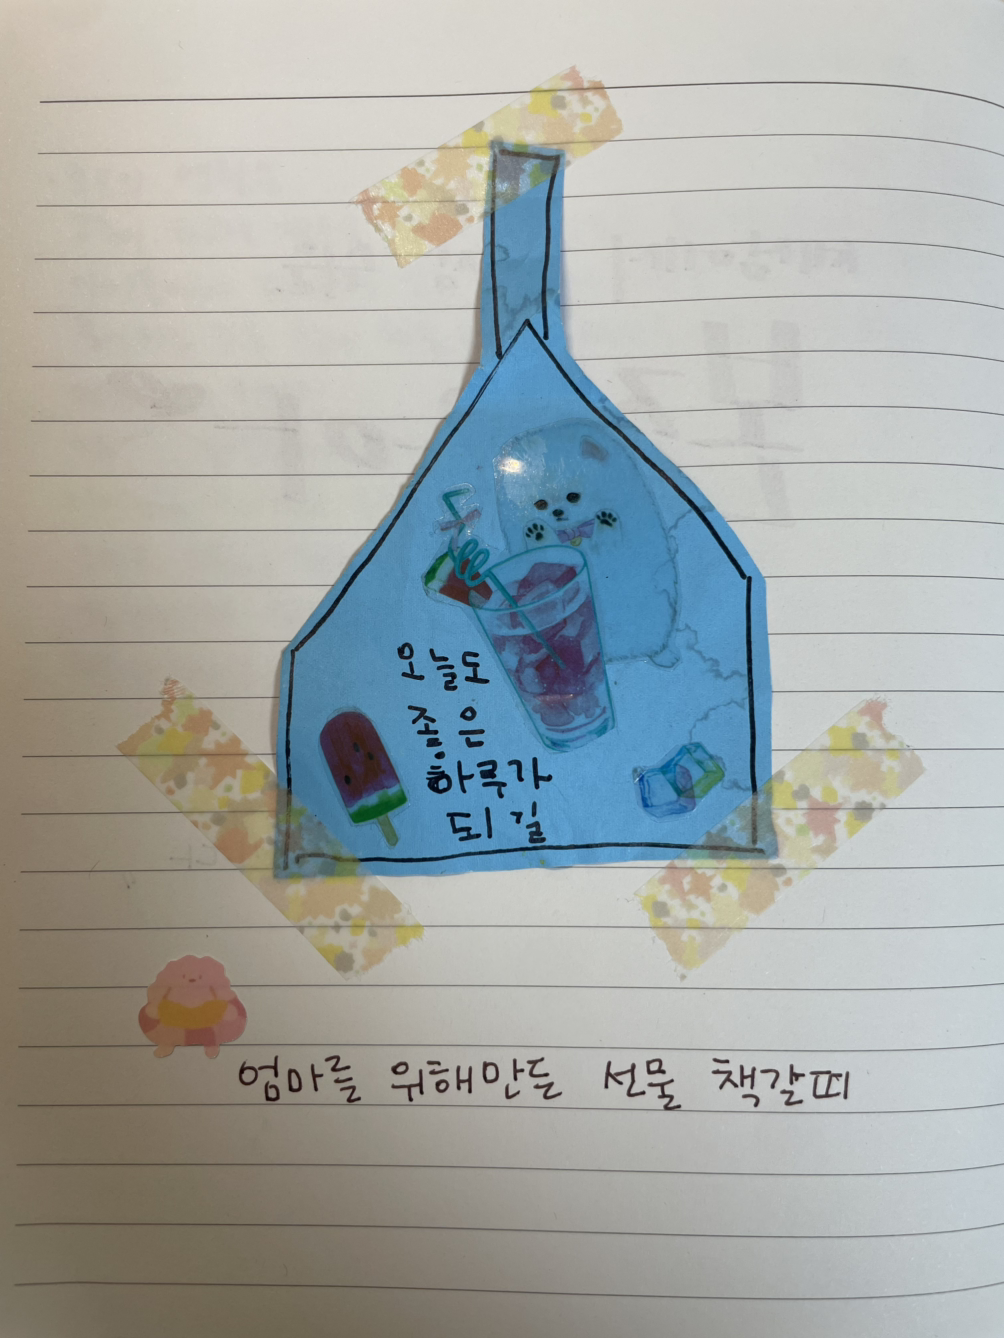 오늘도
좋은
하루가
되길
엄마를 위해만든 선물 책갈띠